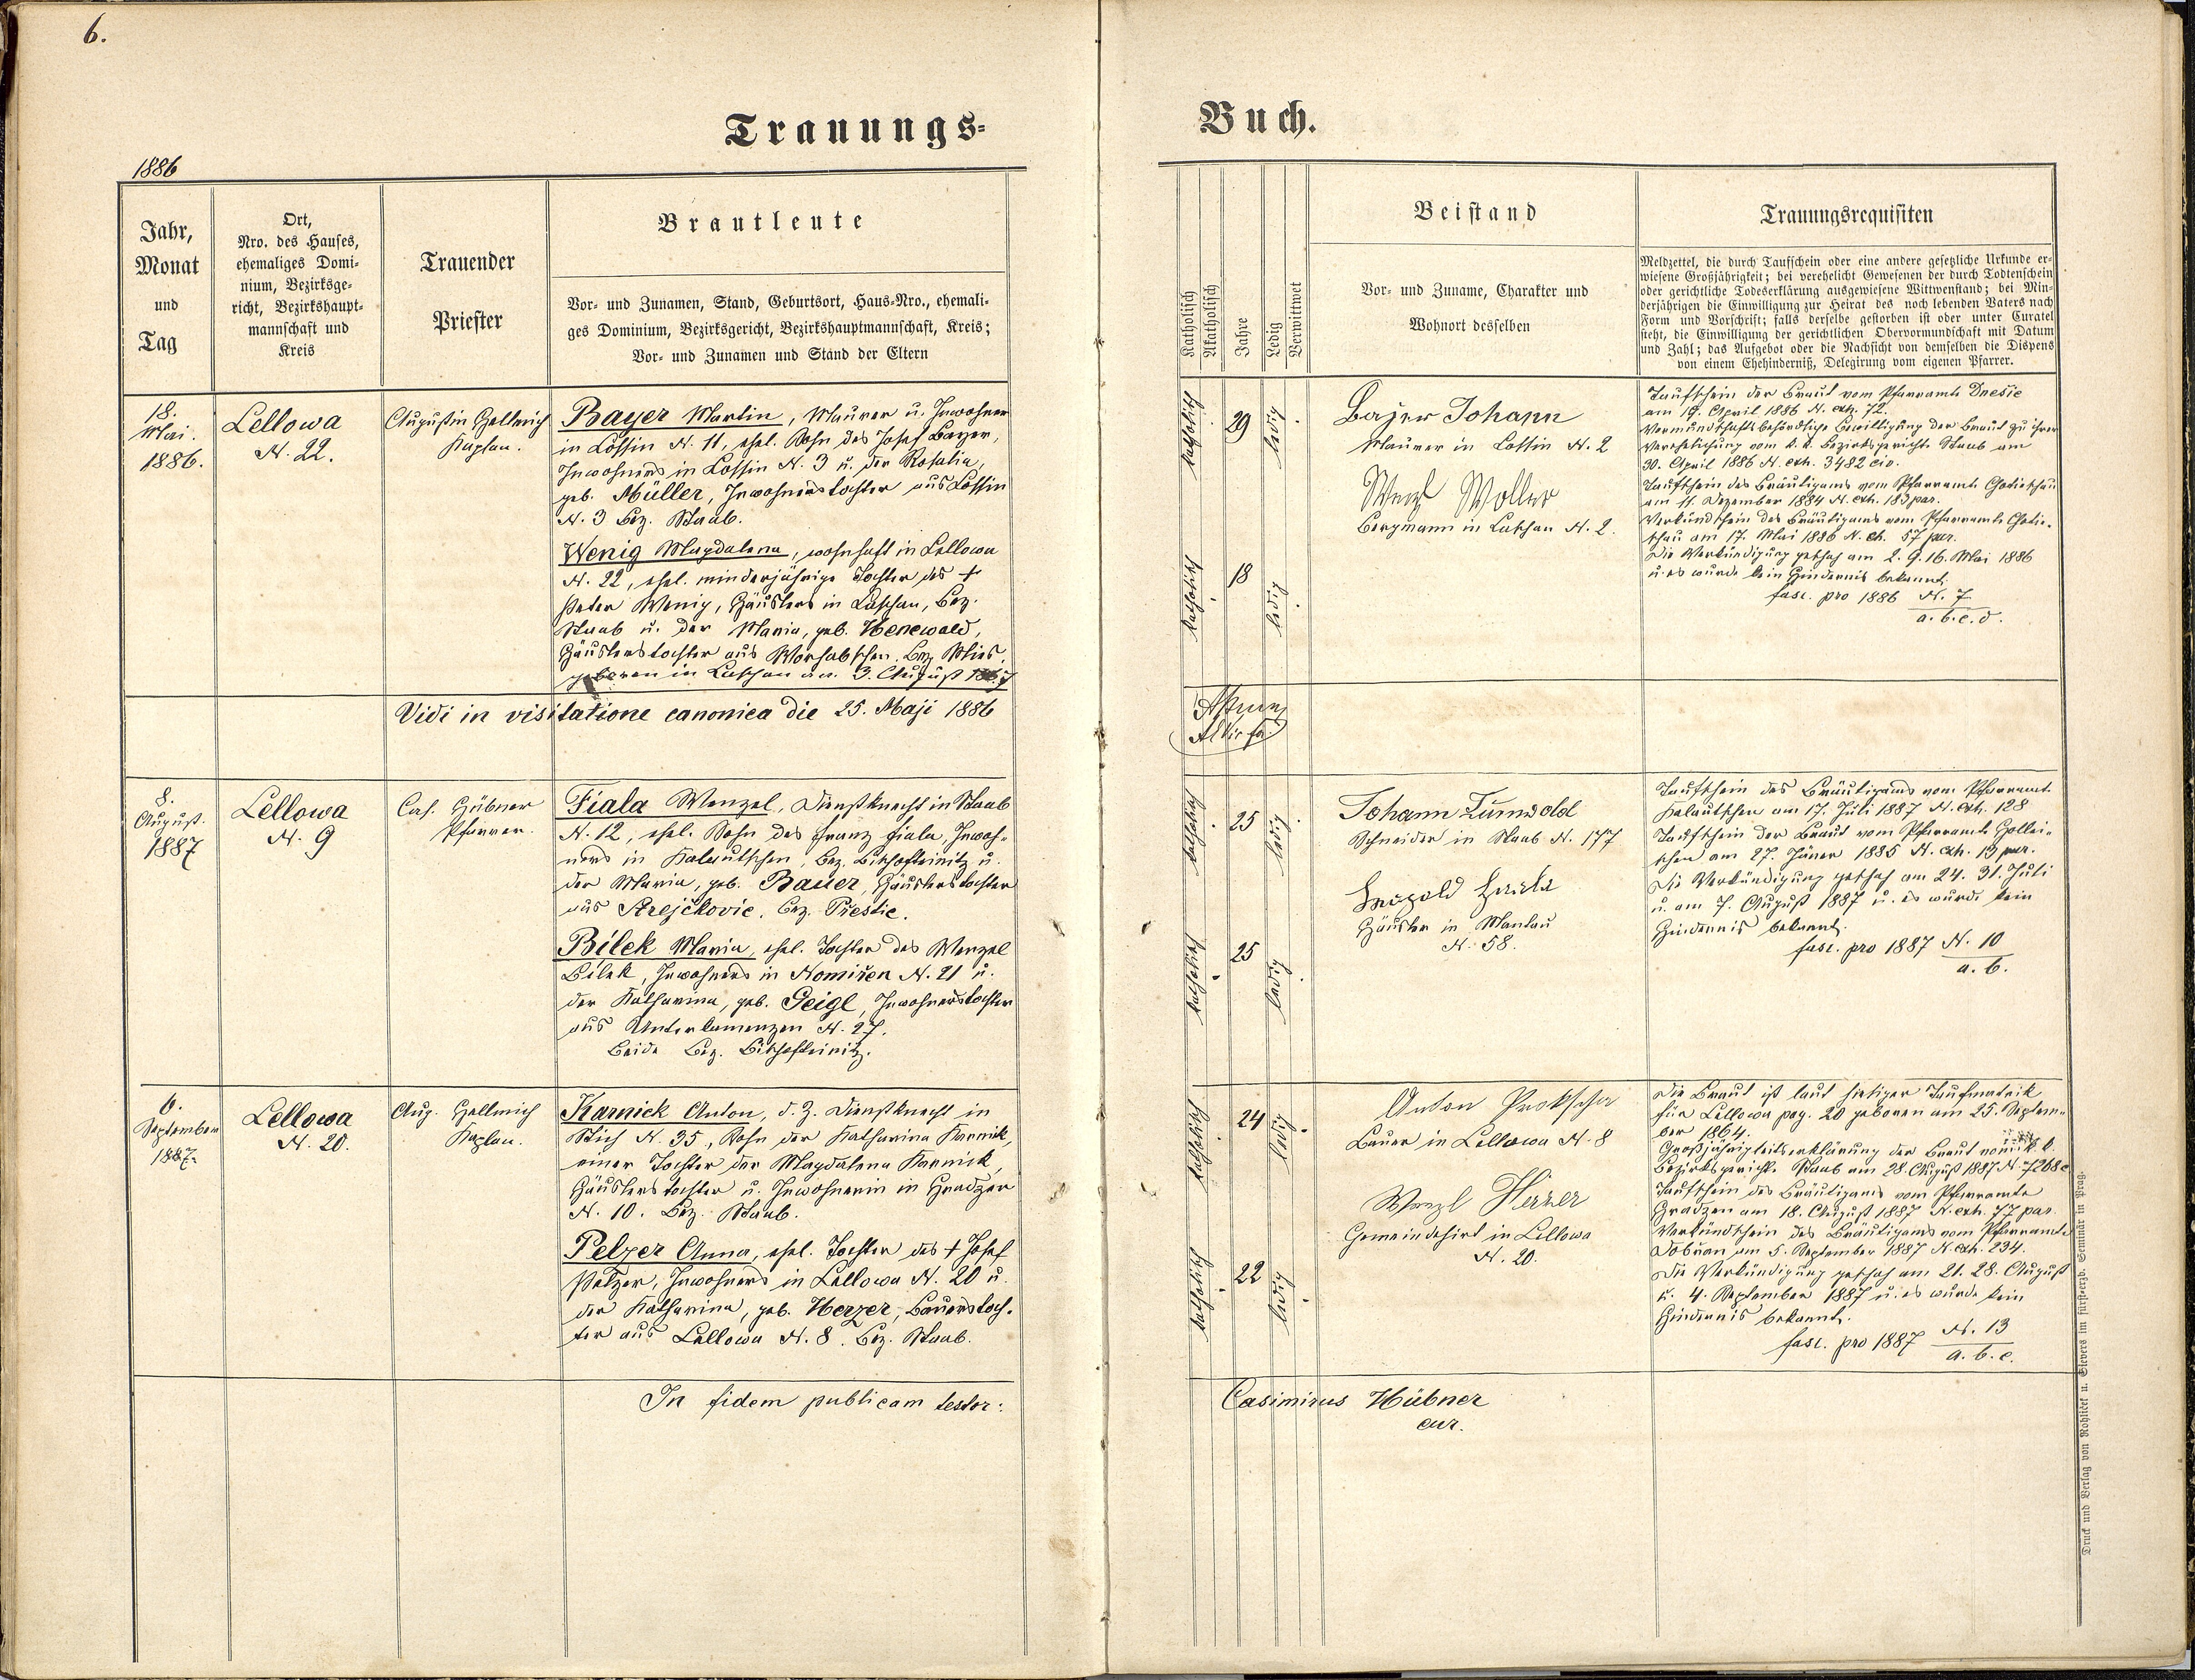 6.
Trauungs=
1886
Jahr,
Monat
und
Tag
Ort,
Nro. des Hauses,
ehemaliges Domi-
nium, Bezirksge-
richt, Bezirkshaupt-
mannschaft und
Kreis
Trauender
Priester
Brautleute
Vor- und Zunamen, Stand, Geburtsort, Haus-Nro., ehemali-
ges Dominium, Bezirksgericht, Bezirkshauptmannschaft, Kreis;
Vor- und Zunamen und Stand der Eltern
18.
Mai.
1886.
Lellowa
N. 22.
Augustin Hellmich
Kaplan.
Bayer Martin, Maurer u. Inwohner
in Lossin N. 11, ehel. Sohn des Josef Bayer,
Inwohners in Lossin N. 3 u. der Rosalia,
geb. Müller, Inwohnerstochter aus Lossin
N. 3 Bez. Staab.
Wenig Magdalena, wohnhaft in Lellowa
N. 22, ehel. minderjährige Tochter des +
Peter Wenig, Häuslers in Luschau, Bez.
Staab u. der Maria, geb. Henewald,
Häuslerstochter aus Bez. Mies.
geboren in Luschau am 3. August
Vidi in visitatione canonica die 25. Maji 1886
8.
August.
1887
Lellowa
N. 9
Cas. Hübner
Pfarrer.
Fiala Wenzel, Dienstknecht in Staab
N. 12, ehel. Sohn des Franz Fiala, Inwoh-
ners in Kalautschen, Bez. Bischofteinitz u.
der Maria, geb. Bauer, Häuslerstochter
aus Strejčkovic, Bez. Přestic.
Bílek Maria, ehel. Tochter des Wenzel
Bílek, Inwohners in Nomiřen N. 21 u.
der Katharina, geb. Geigl, Inwohnerstochter
aus Unterkamenzen N. 27.
Beide Bez. Bischofteinitz.
6.
September
1887.
Lellowa
N. 20.
Aug. Hellmich
Kaplan.
Karnick Anton, d. Z. Dienstknecht in
Stich N. 35, Sohn der Katharina Karnick,
einer Tochter der Magdalena Karnick,
Häuslerstochter u. Inwohnerin in Hradzen
N. 10. Bez. Staab.
Pelzer Anna, ehel. Tochter des + Josef
Pelzer, Inwohners in Lellowa N. 20 u.
der Katharina, geb. Herzer, Bauerstoch-
ter aus Lellowa N. 8. Bez. Staab.
In fidem publicam testor:
Buch.
Katholisch
Akatholisch
Jahre
Ledig
Verwittwet
Beistand
Vor- und Zuname, Charakter und
Wohnort desselben
Trauungsrequisiten
Meldzettel, die durch Taufschein oder eine andere gesetzliche Urkunde er-
wiesene Großjährigkeit; bei verehelicht Gewesenen der durch Todtenschein
oder gerichtliche Todeserklärung ausgewiesene Wittwenstand; bei Min-
derjährigen die Einwilligung zur Heirat des noch lebenden Vaters nach
Form und Vorschrift; falls derselbe gestorben ist oder unter Curatel
steht, die Einwilligung der gerichtlichen Obervormundschaft mit Datum
und Zahl; das Aufgebot oder die Nachsicht von demselben die Dispens
von einem Ehehinderniß, Delegirung vom eigenen Pfarrer.
katholisch
29
ledig
katholisch
18
ledig
Bajer Johann
Maurer in Lossin N. 2
Wenzl Woller
Bergmann in Luschau N. 2.
Taufschein der Braut vom Pfarramte Dnešic
am 19. April 1886 N. exh. 72.
Vormundschaftsbehördliche Bewilligung der Braut zu ihrer
Verehelichung vom k. k. Bezirksgericht Staab am
30. April 1886 N. exh. 3482 civ.
Taufschein des Bräutigams vom Pfarramte Chotieschau
am 11. Dezember 1884 N. exh. 183 par.
Verkündschein des Bräutigams vom Pfarramte Chotie-
schau am 17. Mai 1886 N. exh. 57 par.
Die Verkündigung geschah am 2. 9. 16. Mai 1886
u. es wurde kein Hindernis bekannt.
fasc. pro 1886 N. 7
a. b. c. d.
katholisch
25
ledig
katholisch
25
ledig
Johann Zunwold
Schneider in Staab N. 177
Leopold
Häusler in Mantau
N. 58.
Taufschein des Bräutigams vom Pfarramte
Kalautschen am 17. Juli 1887 N. exh. 128
Taufschein der Braut vom Pfarramte Hollei-
schen am 27. Jäner 1885 N. exh. 13 par.
Die Verkündigung geschah am 24. 31. Juli
u. am 7. August 1887 u. es wurde kein
Hindernis bekannt.
fasc. pro 1887 N. 10
a. b.
katholisch
24
ledig
katholisch
22
ledig
Anton Prokscha
Bauer in Lellowa N. 8
Wenzl Herzer
Gemeindehirt in Lellowa
N. 20.
Die Braut ist laut hiesiger Taufmatrik
für Lellowa pag. 20 geboren am 25. Septem-
ber 1864.
Großjährigkeitserklärung der Braut vom k. k.
Bezirksgericht Staab am 28. August 1887 N. 7268
Taufschein des Bräutigams vom Pfarramte
Hradzen am 18. August 1887 N. exh. 77 par.
Verkündschein des Bräutigams vom Pfarramte
Dobřan am 5. September 1887 N. exh. 234.
Die Verkündigung geschah am 21. 28. August
u. 4. September 1887 u. es wurde kein
Hindernis bekannt.
fasc. pro 1887 N. 13
a. b. c.
Casimirus Hübner
cur.
Druck und Verlag von Rohliček u. Sievers im fürst-erzb. Seminär in Prag.